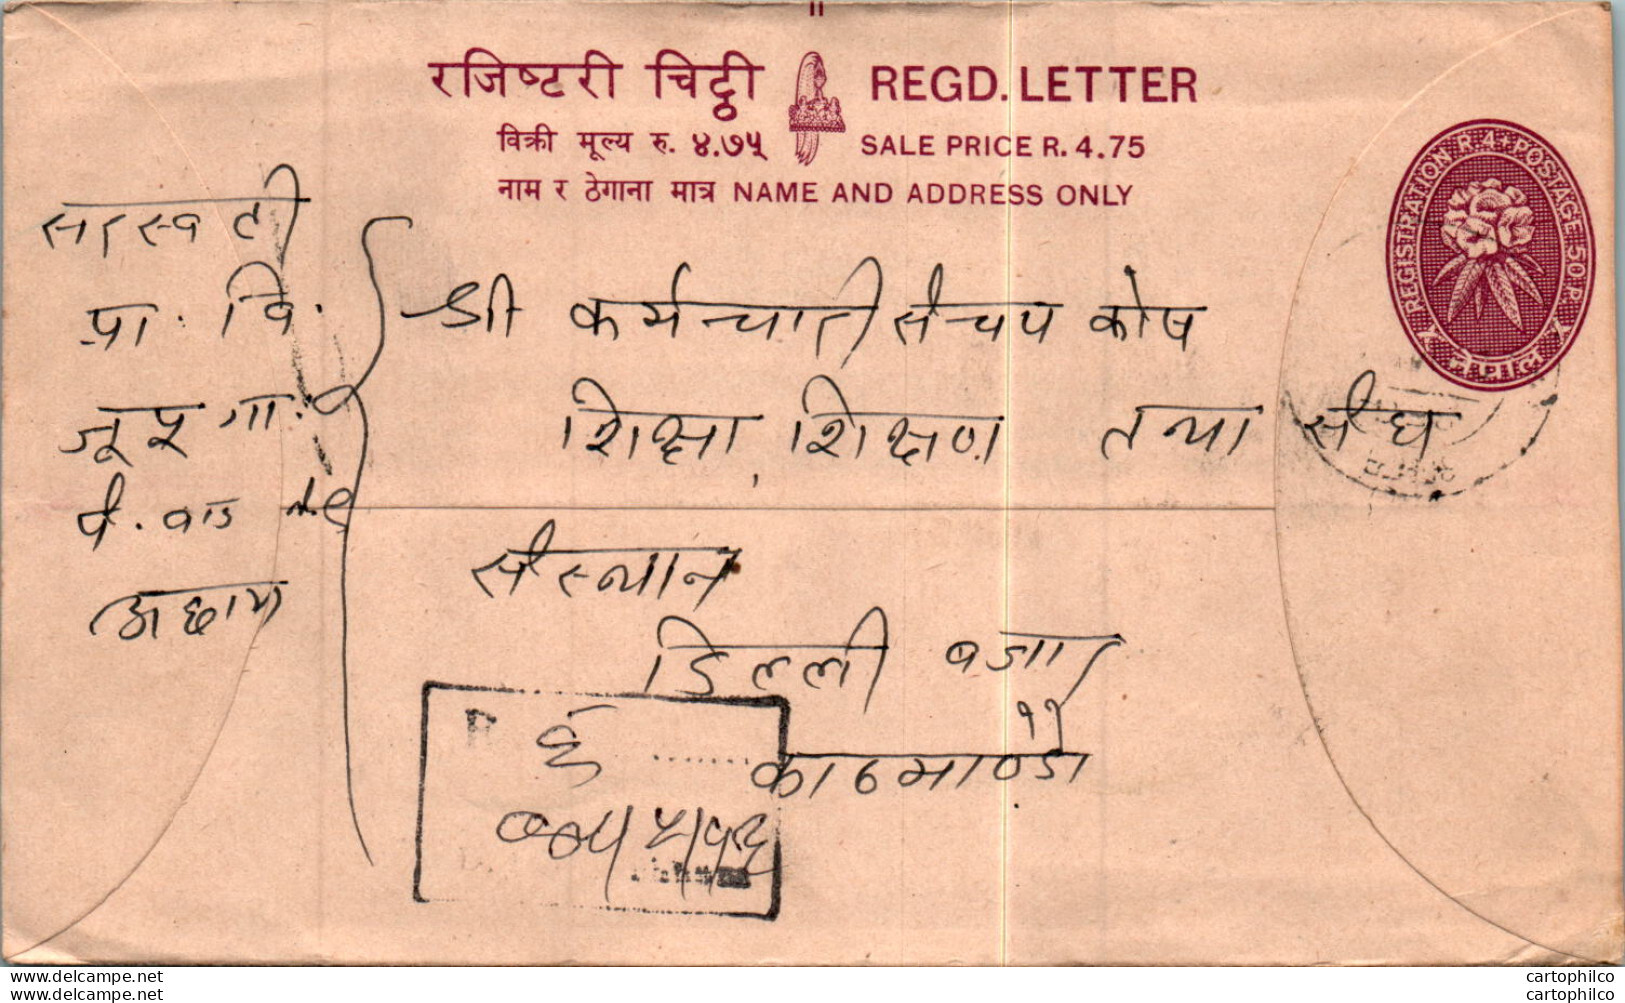 रजिष्टरी चिट्ठी REGD. LETTER
विक्री मूल्य रु. ४.७५ SALE PRICE R. 4.75
नाम र ठेगाना मात्र NAME AND ADDRESS ONLY
REGISTRATION R 4 + POSTAGE 50 P.
नेपाल
सरस्वती
प्रा. वि.
वडा नं. ९
अछाम
श्री कर्मचारी संचय कोष
शिक्षा, शिक्षण तथा संघ
संस्थान
डिल्ली बजार
काठमाण्डौ
R
cartophilco
cartophilco
delcampe.net
delcampe.net